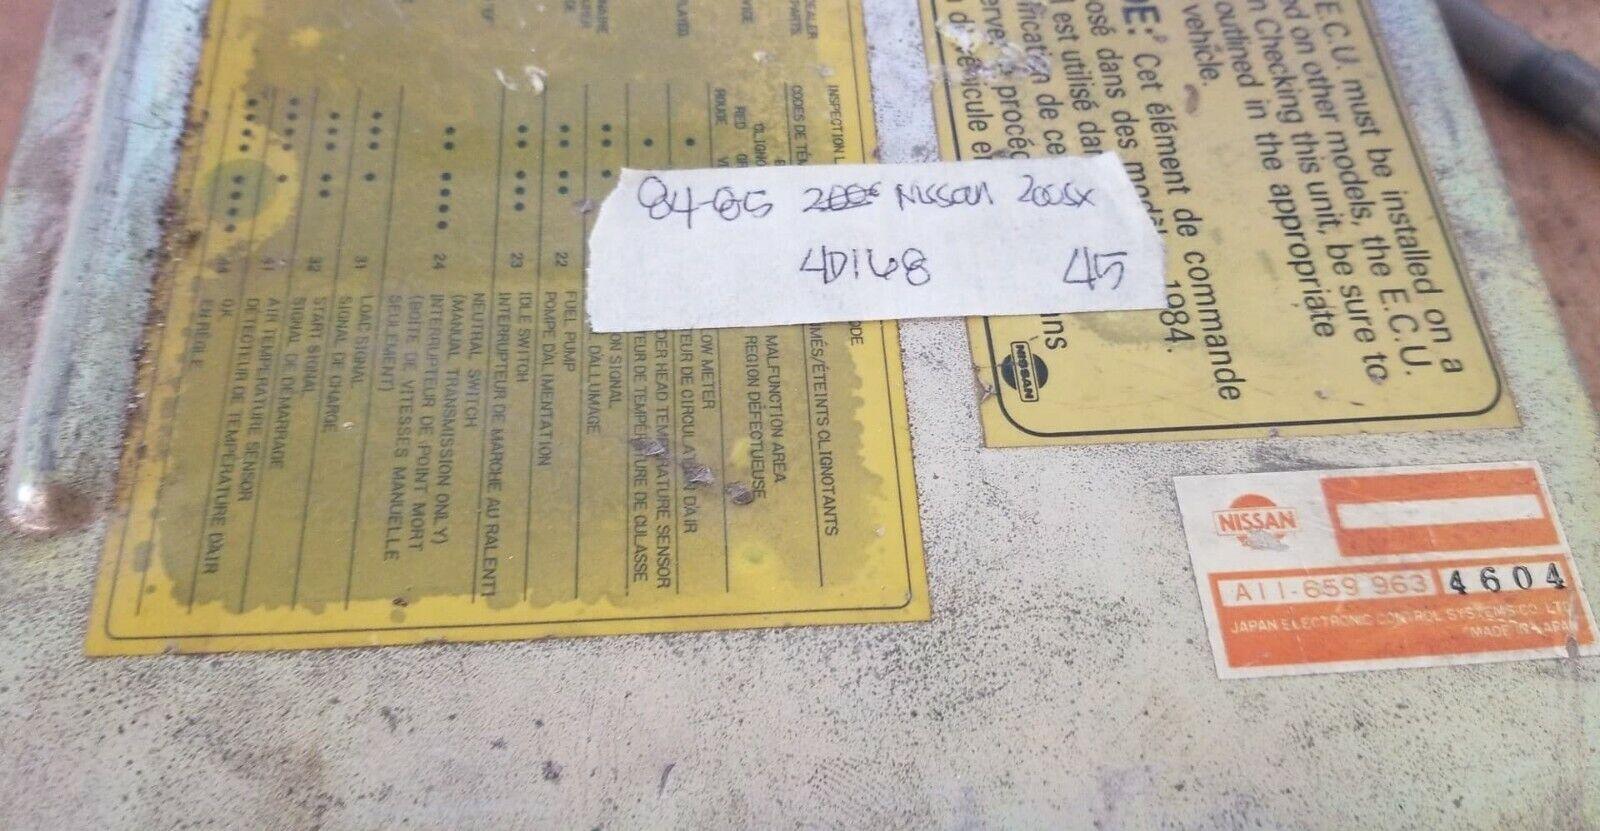 84-85 Nissan 200sx
4D168 45
E.C.U. must be installed on a
ed on other models, the E.C.U.
n Checking this unit, be sure to
outlined in the appropriate
vehicle.
DE: Cet élément de commande
posé dans des 1984.
l est utilisé dans
ification de ce
erver procéd
d'éhicule et
NISSAN
NISSAN
A11-659 963 4604
JAPAN ELECTRONIC CONTROL SYSTEMS CO. LTD.
MADE IN JAPAN
INSPECTION L
MÉS/ÉTEINTS CLIGNOTANTS
CODES DE
CLIGNO
RED
ROUGE
MALFUNCTION AREA
REGION DÉFECTUEUSE
OW METER
EUR DE CIRCULATION D'AIR
DER HEAD TEMPERATURE SENSOR
TEUR DE TEMPÉRATURE DE CULASSE
ON SIGNAL
L D'ALLUMAGE
22 FUEL PUMP
POMPE D'ALIMENTATION
23 IDLE SWITCH
INTERRUPTEUR DE MARCHE AU RALENTI
24 NEUTRAL SWITCH
(MANUAL TRANSMISSION ONLY)
INTERRUPTEUR DE POINT MORT
(BOITE DE VITESSES MANUELLE
SEULEMENT)
31 LOAD SIGNAL
SIGNAL DE CHARGE
32 START SIGNAL
SIGNAL DE DÉMARRAGE
41 AIR TEMPERATURE SENSOR
DÉTECTEUR DE TEMPÉRATURE D'AIR
44 OK
EN RÈGLE